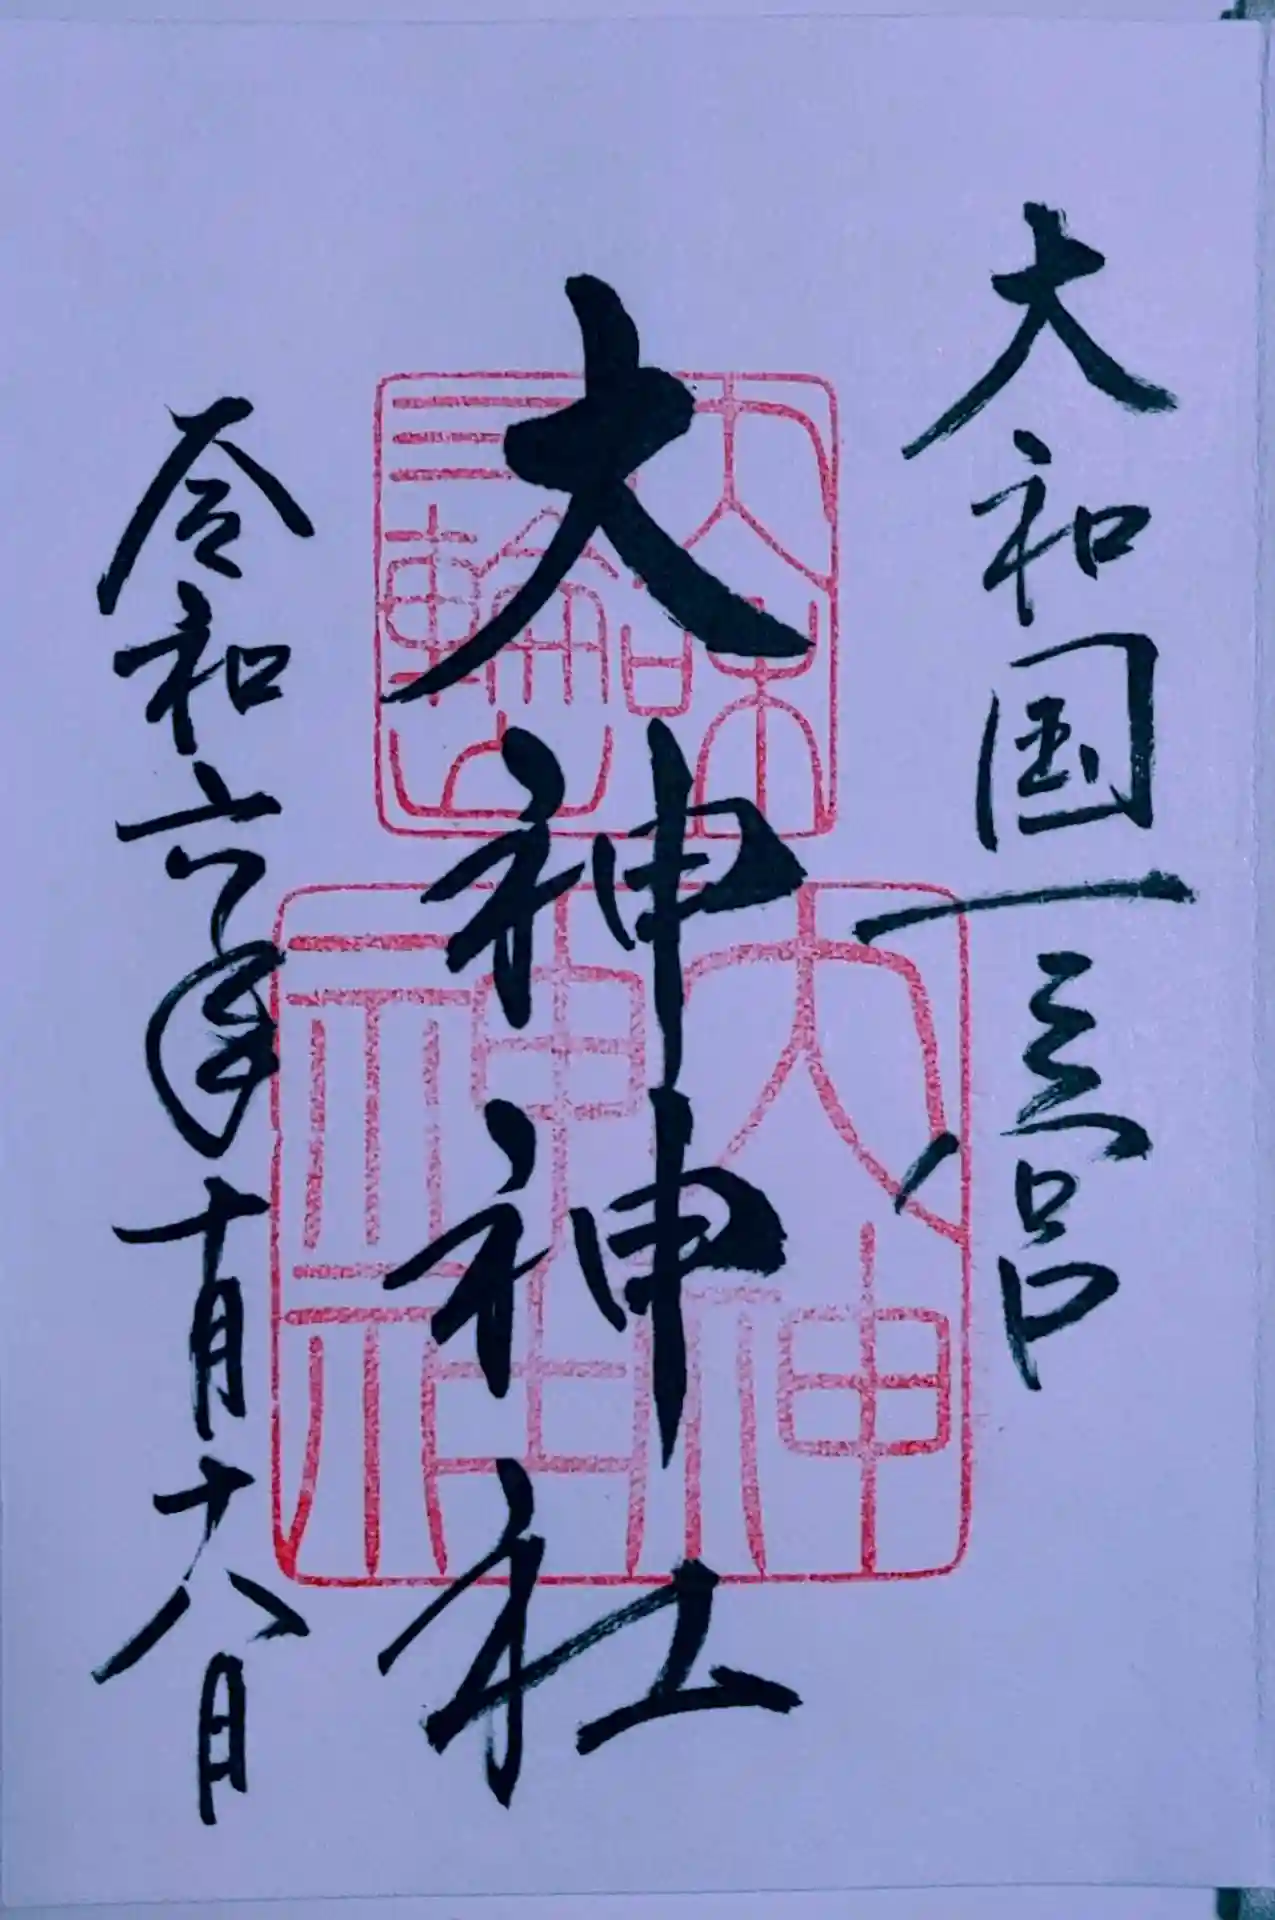 大和国一之宮
大神神社
令和六年十月十八日
大和
三輪山
大神
神社